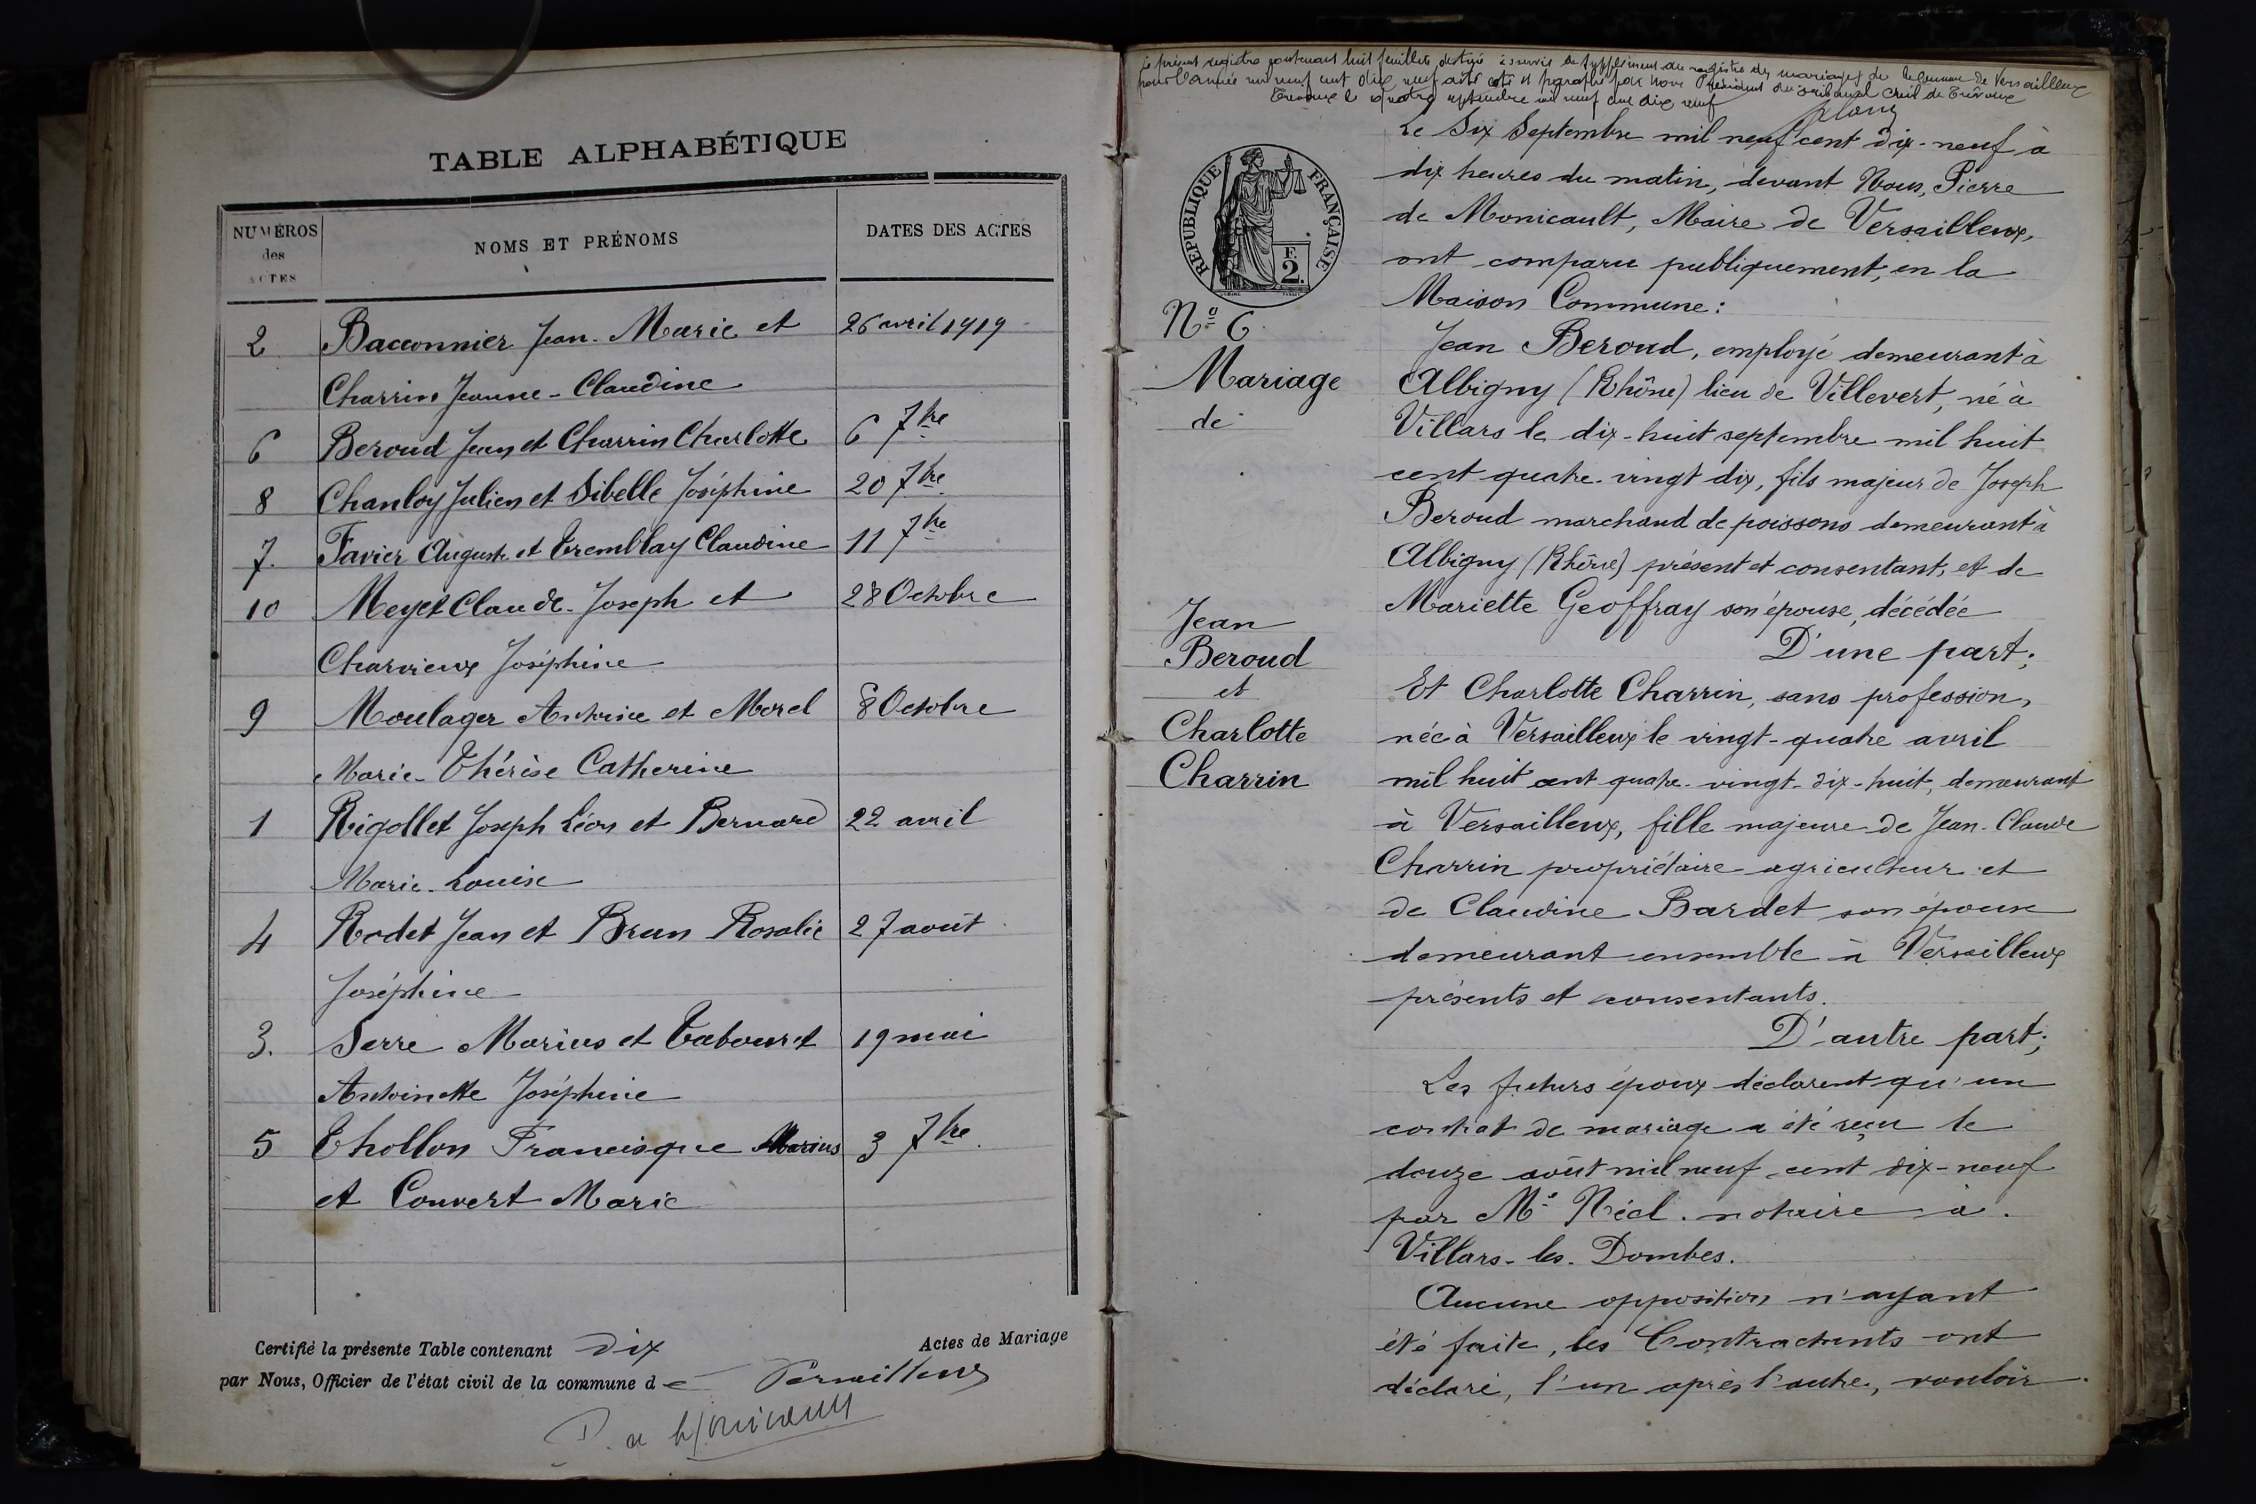 TABLE ALPHABÉTIQUE
NUMÉROS des ACTES
NOMS ET PRÉNOMS
DATES DES ACTES
2 Bacconnier Jean-Marie et 26 avril 1919
Charrin Jeanne-Claudine
6 Beroud Jean et Charrin Charlotte 6 7bre
8 Chanloy Julien et Sibelle Joséphine 20 7bre
7. Favier Auguste et Tremblay Claudine 11 7bre
10 Meyet Claude-Joseph et 28 Octobre
Charvieux Joséphine
9 Moulager Antoine et Morel 8 Octobre
Marie-Thérèse Catherine
1 Rigollet Joseph Léon et Bernard 22 avril
Marie-Louise
4 Rodet Jean et Brun Rosalie 27 août
Joséphine
3. Serre Marius et Tabouret 19 mai
Antoinette Joséphine
5 Thollon Francisque Marius 3 7bre
et Convert Marie
Certifié la présente Table contenant dix Actes de Mariage
par Nous, Officier de l'état civil de la commune de Versailleux
P. de Monicault
Le présent registre contenant huit feuillets destiné à servir de supplément au registre des mariages de la commune de Versailleux
pour l'année mil neuf cent dix neuf a été coté et paraphé par Nous Président du tribunal civil de Trévoux
Trévoux le quatre septembre mil neuf cent dix neuf
RÉPUBLIQUE FRANÇAISE
F. 2.
No 6
Mariage
de
Jean
Beroud
et
Charlotte
Charrin
Le Six Septembre mil neuf cent dix-neuf à
dix heures du matin, devant Nous, Pierre
de Monicault, Maire de Versailleux,
ont comparu publiquement, en la
Maison Commune :
Jean Beroud, employé demeurant à
Albigny (Rhône) lieu de Villevert, né à
Villars le dix-huit septembre mil huit
cent quatre-vingt dix, fils majeur de Joseph
Beroud marchand de poissons demeurant à
Albigny (Rhône) présent et consentant, et de
Mariette Geoffray son épouse, décédée
D'une part ;
Et Charlotte Charrin, sans profession,
née à Versailleux le vingt-quatre avril
mil huit cent quatre-vingt-dix-huit, demeurant
à Versailleux, fille majeure de Jean-Claude
Charrin propriétaire agriculteur et
de Claudine Bardet son épouse
demeurant ensemble à Versailleux
présents et consentants.
D'autre part ;
Les futurs époux déclarent qu'un
contrat de mariage a été reçu le
douze août mil neuf cent dix-neuf
par Me notaire à
Villars-les-Dombes.
Aucune opposition n'ayant
été faite, les Contractants ont
déclaré, l'un après l'autre, vouloir